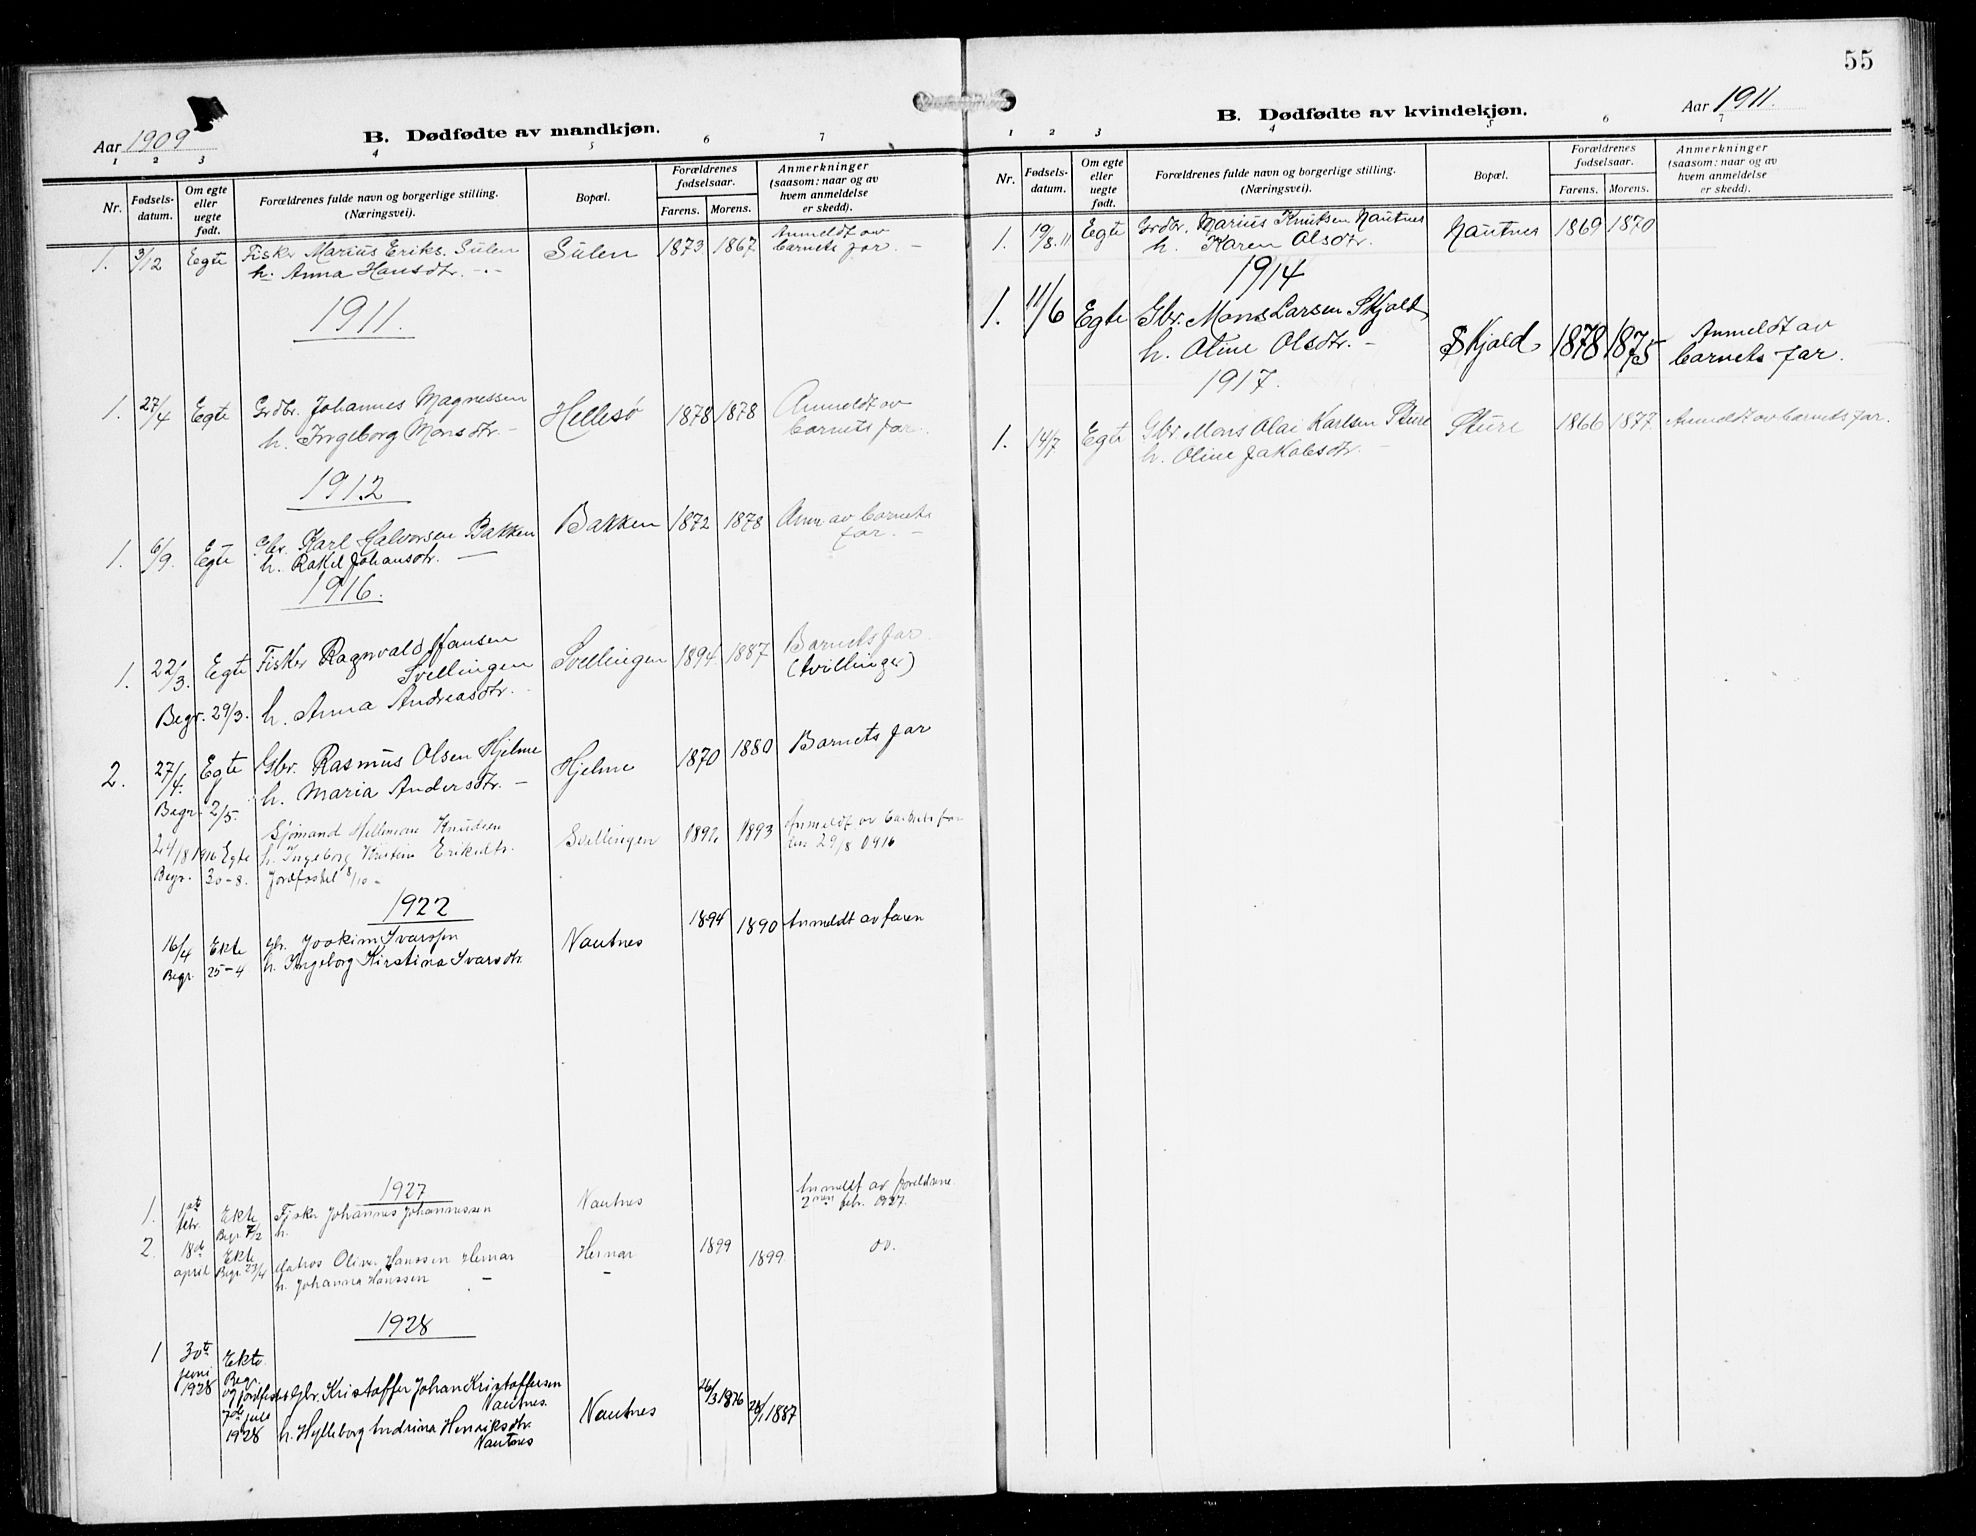 Aar 1909
B. Dødfødte av mandkjøn.
1 2 3 4 5 6 7
Nr.
Fødsels-
datum.
Om egte
eller
uegte
født.
Forældrenes fulde navn og borgerlige stilling.
(Næringsvei).
Bopæl.
Forældrenes
fødselsaar.
Farens. Morens.
Anmerkninger
(saasom: naar og av
hvem anmeldelse
er skedd).
1. 3/12 Egte Fisker Marius Eriks. Sulen Sulen 1873. 1867. Anmeldt av
h. Anna Hansdtr. -.- barnets far. -
1911.
1. 27/4 Egte Grdbr. Johannes Magnessen Hellesø 1878 1878 Anmeldt av
h. Ingeborg Monsdtr. - barnets far.
1912
1. 6/9. Egte Gbr. Karl Halvorsen Bakken Bakken 1872 1878 Anm av barnets
h. Rakel Johansdtr. - far. -
1916.
1. 22/3. Egte Fisker Ragnvald Hansen Svellingen 1894. 1887 Barnets far.
Svellingen (tvillinger)
Begr. 29/3. h. Anna Andreasdtr.
2. 27/4. Egte Gbr. Rasmus Olsen Hjelme Hjelme 1870 1880 Barnets far
h. Maria Andersdtr. -
Begr. 2/5.
Sjømand Hellman Knudsen Svellingen 1893 Anmeldt av barnets far
24/8 1916 Egte h. Ingeborg Kristine Eriksdtr. den 29/8 1916
Begr. 30-8. Jordfestet 8/10 -
1922
16/4 Ekte gbr. Joakim Ivarssen Nautnes 1894 1890 Anmeldt av faren
Begr. 25-4 h. Ingeborg Kirstina Ivarsdtr.
1927
1. 1ste febr. Ekte Fisker Johannes Johannessen Nautnes Anmeldt av foreldrene
Begr. 7/2 h. 2nen febr. 1927.
2. 18de april Ekte Matros Oliver Hanssen Hernar Hernar 1899 1899 do.
Begr. 23/4 h. Johanna Hanssen - -
1928
1 30te juni 1928 Ekte.
Begr.
og jordfestet Gbr. Kristoffer Johan Kristoffersen
Nautnes. Nautnes 26/3 1876 1887
7de juli
1928 h. Hylleborg Indrina Henriksdtr.
Nautnes
55
B. Dødfødte av kvindekjøn.
Aar 1911.
1 2 3 4 5 6 7
Nr.
Fødsels-
datum.
Om egte
eller
uegte
født.
Forældrenes fulde navn og borgerlige stilling.
(Næringsvei).
Bopæl.
Forældrenes
fødselsaar.
Farens. Morens.
Anmerkninger
(saasom: naar og av
hvem anmeldelse
er skedd).
1. 19/8. 11 Egte Grdbr. Marius Knutsen Nautnes Nautnes 1869 1870
h. Karen Olsdtr.
1914
1. 11/6 Egte Gbr. Mons Larsen Skjold
h. Oline Olsdtr. - Skjold 1878 1875 Anmeldt av
barnets far.
1917.
1. 14/7 Egte Gbr. Mons Olai Karlsen Sture Sture 1866 1877. Anmeldt av barnets far.
h. Oline Jakobsdtr. -